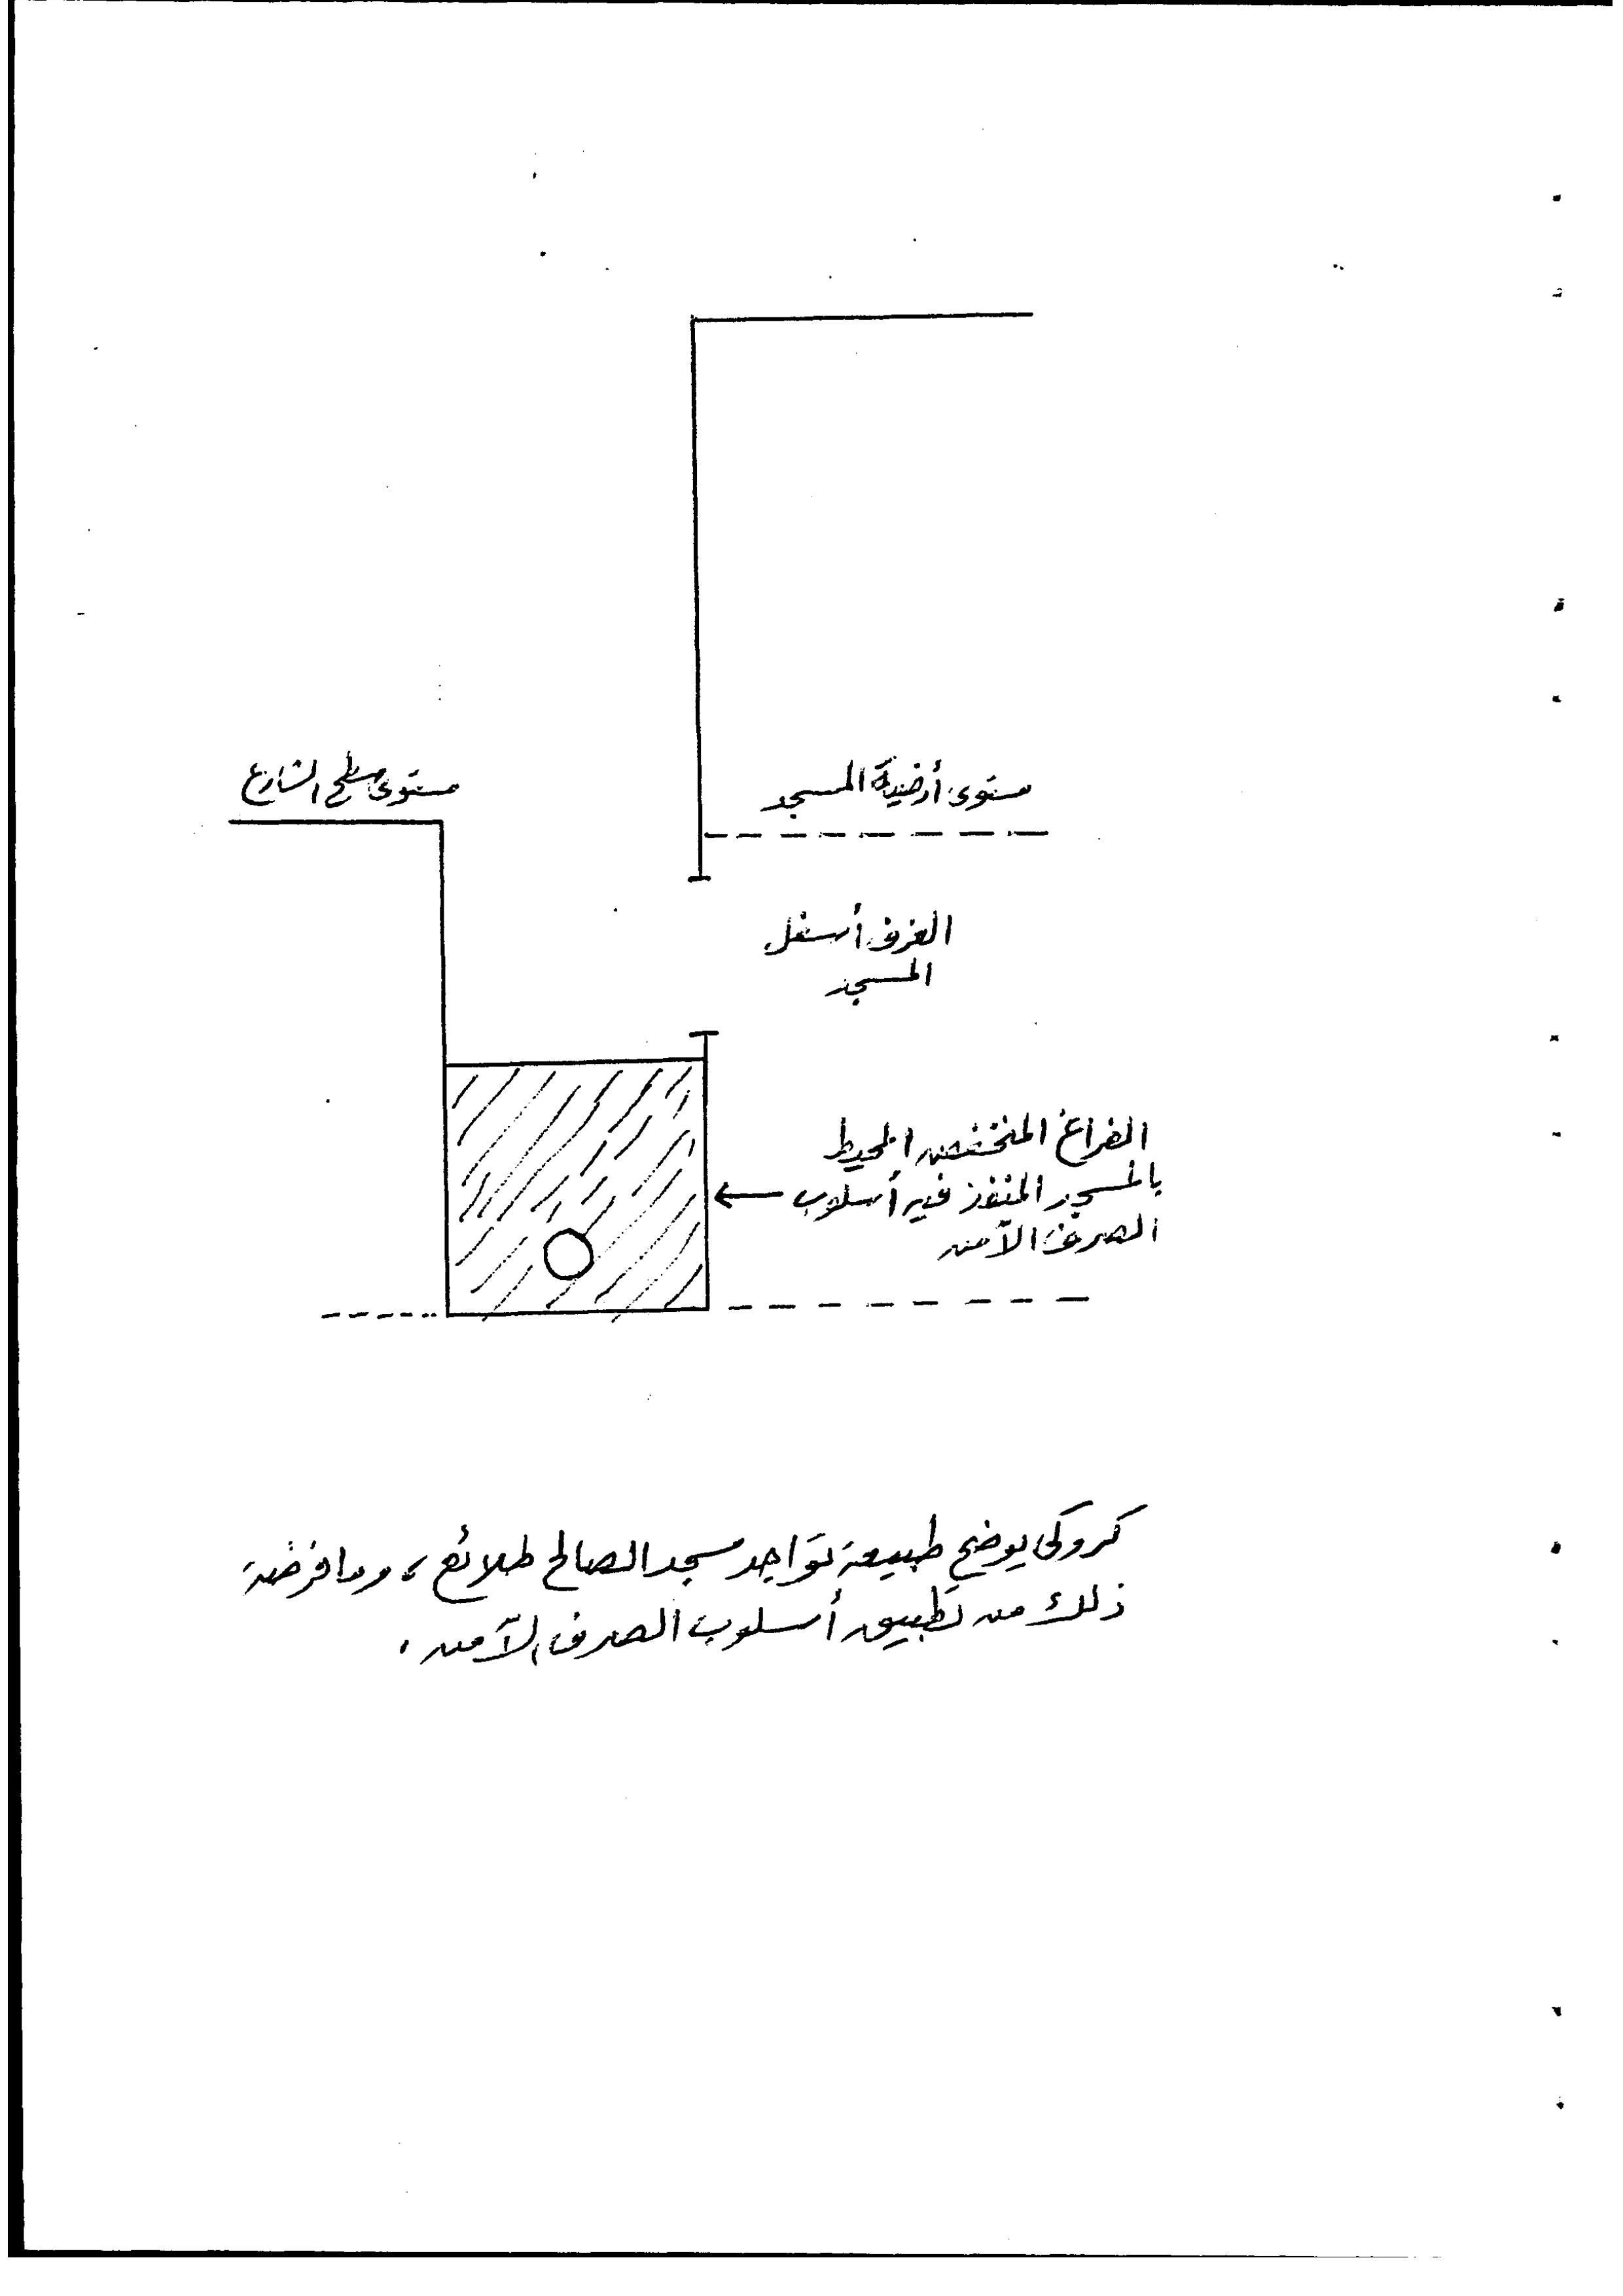 مستوى أرضية المسجد
مستوى سطح الشارع
الغرف أسفل
المسجد
الفراغ المنخفض المحيط
بالمسجد المنفذ فيه أسلوب
الصرف الآمن
كروكى يوضح طبيعة تواجد مسجد الصالح طلائع، وما فرضته
ذلك من تطبيق أسلوب الصرف الآمن .